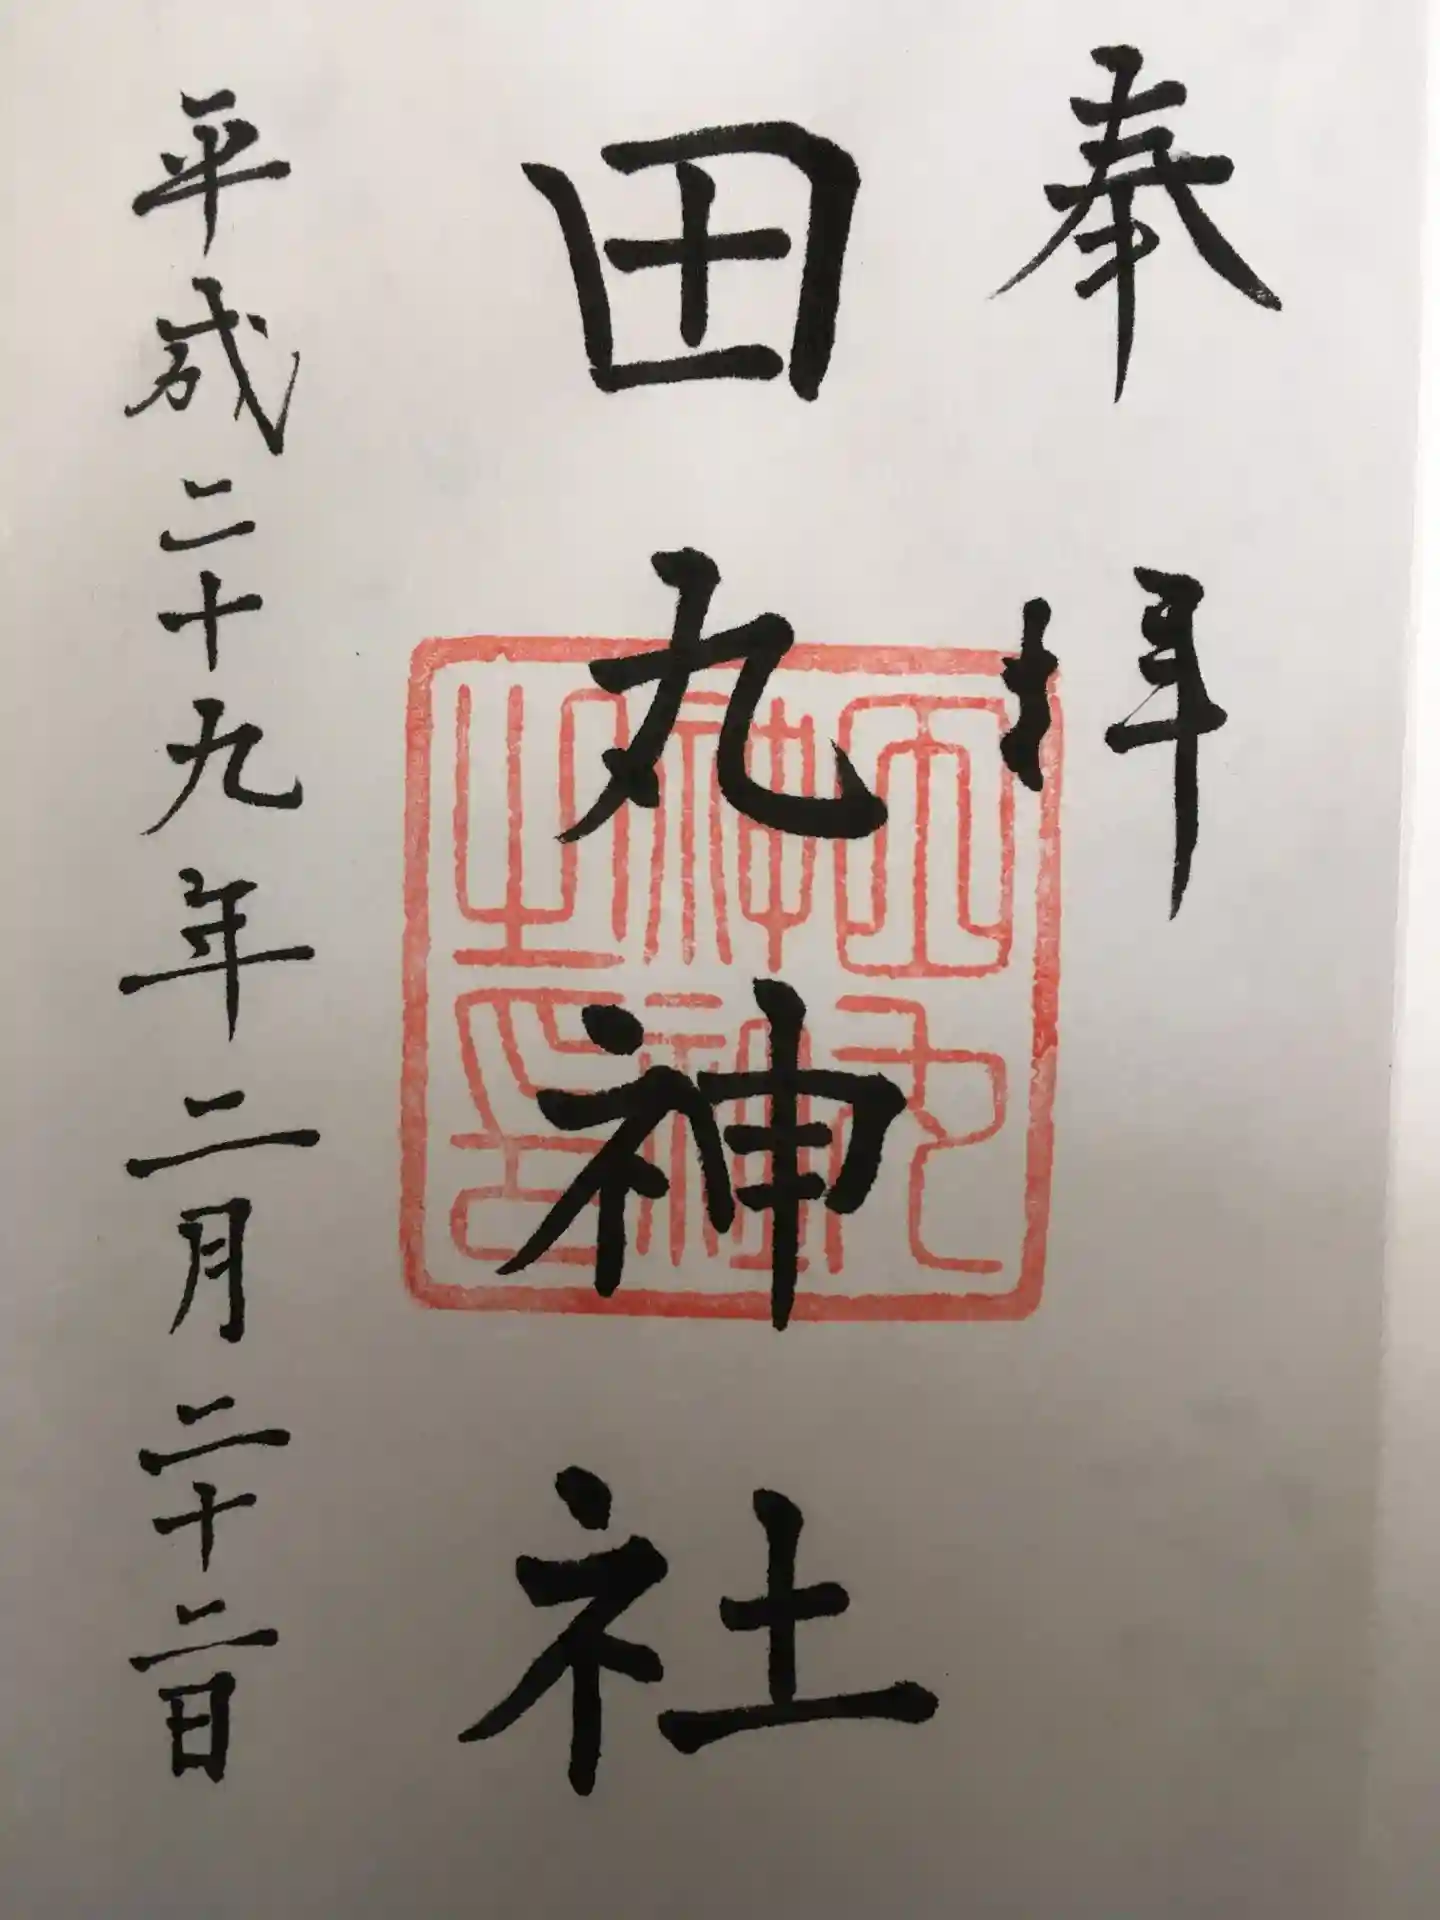 奉拝
田丸神社
平成二十九年二月二十二日